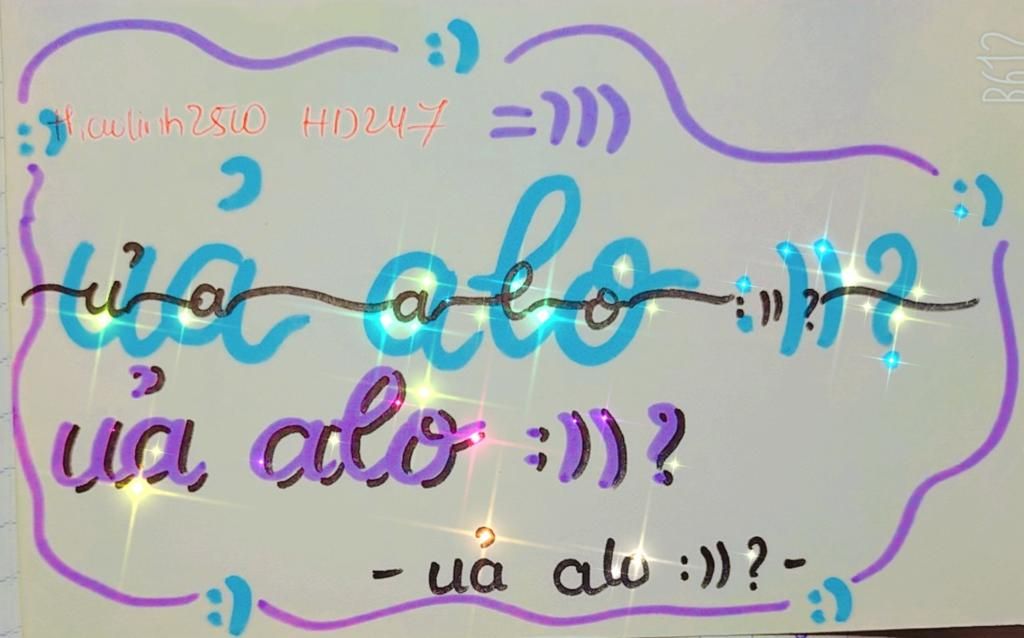 :)
B612
:)
thaolinh2510 HD247 =)))
:)
ủa alo :))?
ủa alo :))?
ủa alo :))?
- ủa alo :))? -
:)
:)